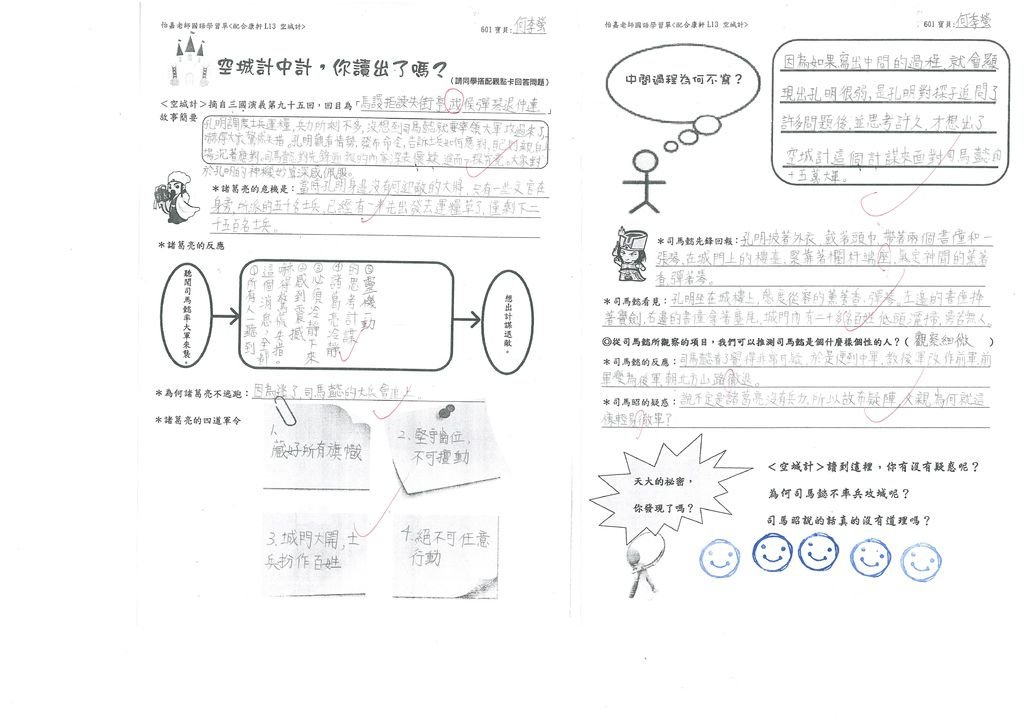 怡嘉老師國語學習單<配合康軒 L13 空城計>
601 寶貝:何李螢
空城計中計，你讀出了嗎？
(請同學搭配觀點卡回答問題)
＜空城計＞摘自三國演義第九十五回，回目為「馬謖拒諫失街亭，武侯彈琴退仲達」
故事簡要
孔明調度士兵運糧，兵力所剩不多，沒想到司馬懿就要率領大軍攻過來了，
於孔明的神機妙算深感佩服。
＊諸葛亮的危機是：當時孔明身邊沒有可迎敵的大將，只有一些文官在
身旁，所派的五千名士兵，已經有一半先出發去運糧草了，僅剩下二
千五百名士兵。
＊諸葛亮的反應
聽聞司馬懿率大軍來襲。
①所有人一聽到
這個消息，全都
嚇得驚慌失措。
②感到震撼
③必須冷靜下來
④諸葛亮冷靜
的思考計謀
⑤靈機一動
想出計謀退敵。
＊為何諸葛亮不逃跑：因為逃了，司馬懿的大兵會追上。
＊諸葛亮的四道軍令
1.
藏好所有旗幟
2.堅守崗位，
不可擅動
3.城門大開，士
兵扮作百姓
4.絕不可任意
行動
怡嘉老師國語學習單<配合康軒 L13 空城計>
601 寶貝:何李螢
中間過程為何不寫？
因為如果寫出中間的過程，就會顯
現出孔明很弱，是孔明對探子追問了
許多問題後，並思考許久，才想出了
空城計這個計謀來面對司馬懿的
十五萬大軍。
＊司馬懿先鋒回報：孔明披著外衣，戴著頭巾，帶著兩個書僮和一
張琴，在城門上的樓臺，緊靠著欄杆端坐，氣定神閒的薰著
香，彈著琴。
＊司馬懿看見：孔明坐在城樓上，態度從容的薰著香，彈琴，左邊的書僮捧
著寶劍，右邊的書僮拿著麈尾，城門內有二十名百姓低頭灑掃，旁若無人。
◎從司馬懿所觀察的項目，我們可以推測司馬懿是個什麼樣個性的人？（觀察細微）
＊司馬懿的反應：司馬懿看了覺得非常可疑，於是便到中軍，教後軍改作前軍，前
軍變為後軍，朝北方山路撤退。
＊司馬昭的疑惑：說不定是諸葛亮沒有兵力，所以故布疑陣，父親為何就這
樣輕易撤軍？
天大的祕密，
你發現了嗎？
＜空城計＞讀到這裡，你有沒有疑惑呢？
為何司馬懿不率兵攻城呢？
司馬昭說的話真的沒有道理嗎？